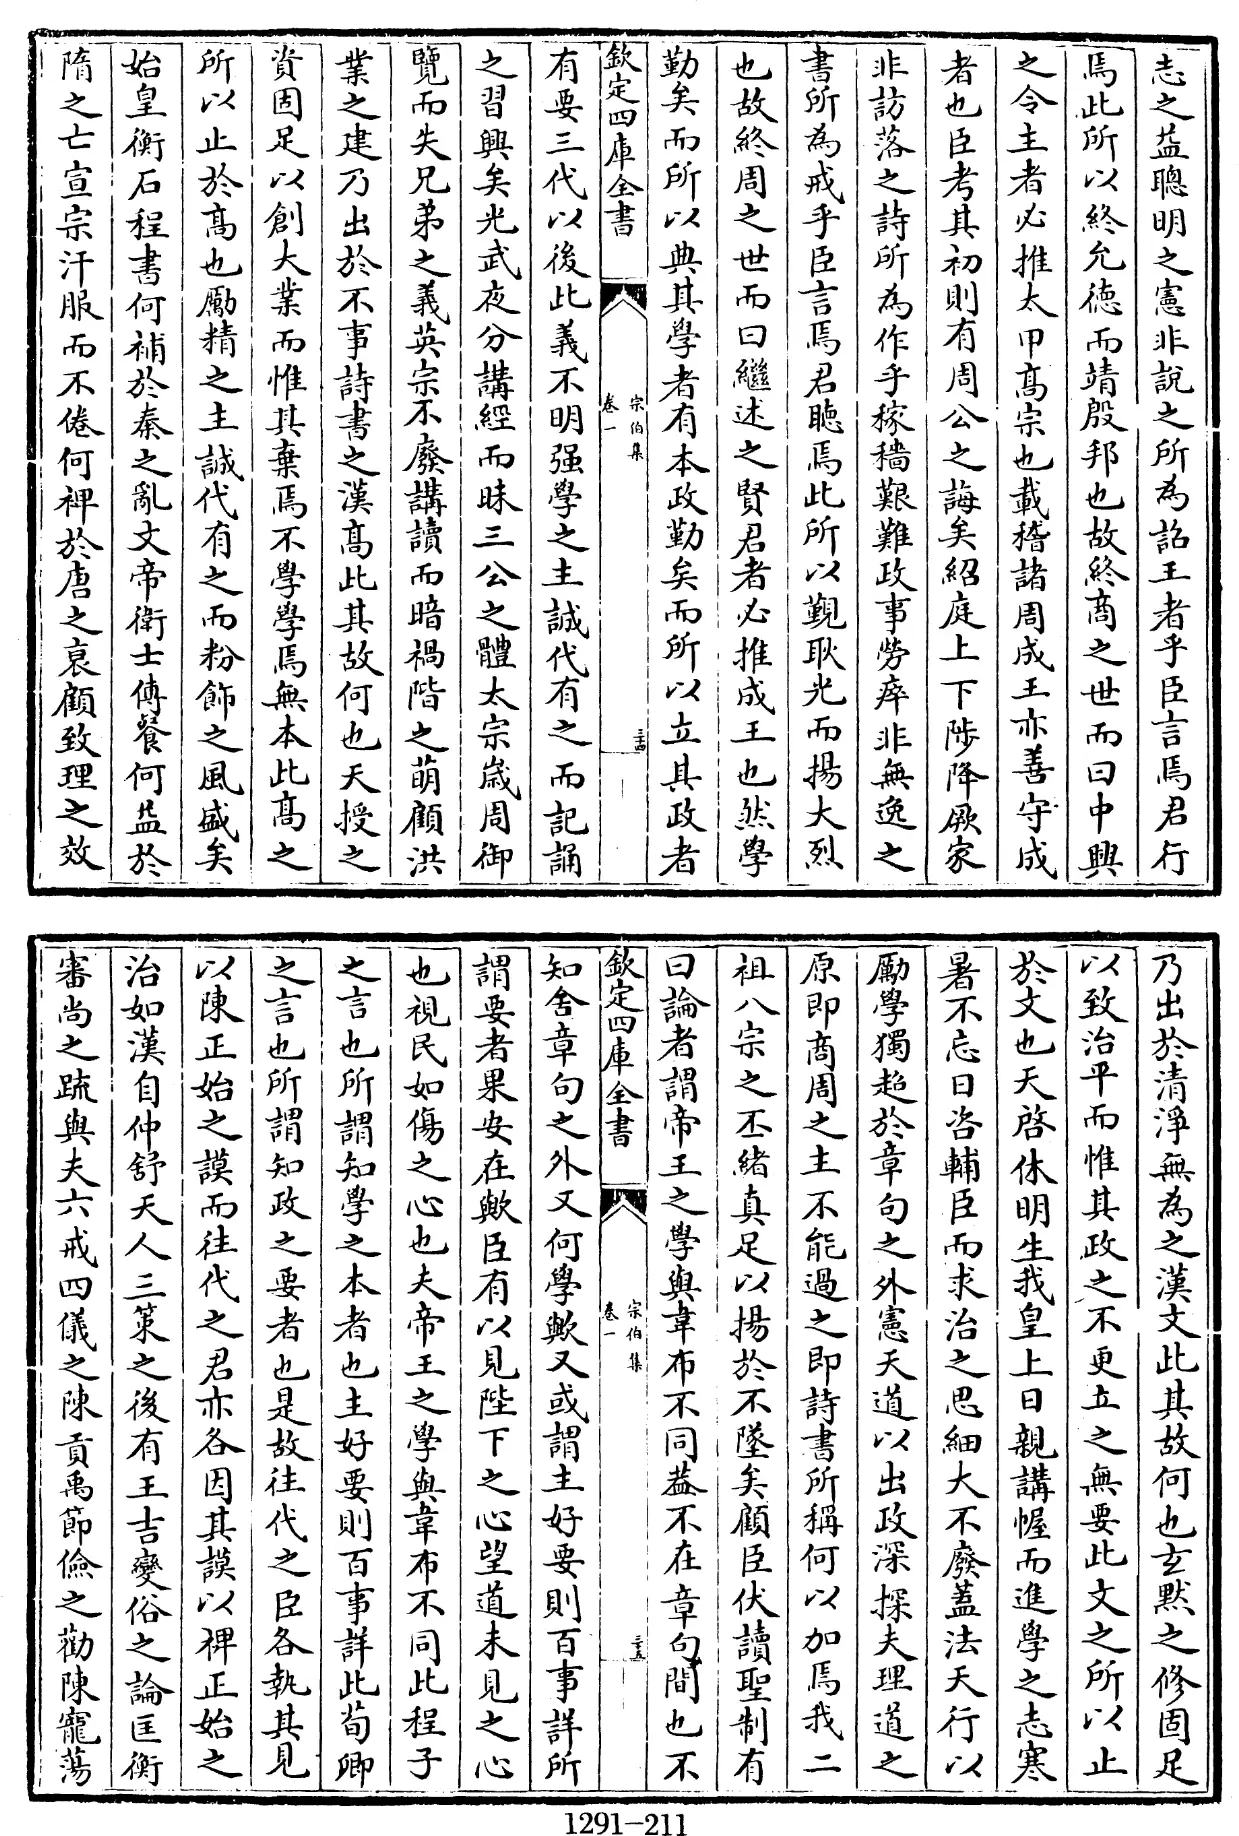 志之益聰明之憲非說之所為詔王者乎臣言焉君行
焉此所以終允德而靖殷邦也故終商之世而曰中興
之令主者必推太甲髙宗也載稽諸周成王亦善守成
者也臣考其初則有周公之誨矣紹庭上下陟降厥家
非訪落之詩所為作乎稼穡艱難政事勞瘁非無逸之
書所為戒乎臣言焉君聽焉此所以覲耿光而揚大烈
也故終周之世而曰繼述之賢君者必推成王也然學
勤矣而所以典其學者有本政勤矣而所以立其政者
欽定四庫全書
宗伯集
卷一
三十四
有要三代以後此義不明强學之主誠代有之而記誦
之習興矣光武夜分講經而昧三公之體太宗嵗周御
覽而失兄弟之義英宗不廢講讀而暗禍階之萌顧洪
業之建乃出於不事詩書之漢髙此其故何也天授之
資固足以創大業而惟其棄焉不學學焉無本此髙之
所以止於髙也勵精之主誠代有之而粉飾之風盛矣
始皇衡石程書何補於秦之亂文帝衛士傳餐何益於
隋之亡宣宗汗服而不倦何裨於唐之衰顧致理之效
乃出於清淨無為之漢文此其故何也玄默之修固足
以致治平而惟其政之不更立之無要此文之所以止
於文也天啓休明生我皇上日親講幄而進學之志寒
暑不忘日咨輔臣而求治之思細大不廢蓋法天行以
勵學獨超於章句之外憲天道以出政深探夫理道之
原即商周之主不能過之即詩書所稱何以加焉我二
祖八宗之丕緒真足以揚於不墜矣顧臣伏讀聖制有
曰論者謂帝王之學與韋布不同葢不在章句間也不
欽定四庫全書
宗伯集
卷一
三十五
知舍章句之外又何學歟又或謂主好要則百事詳所
謂要者果安在歟臣有以見陛下之心望道未見之心
也視民如傷之心也夫帝王之學與韋布不同此程子
之言也所謂知學之本者也主好要則百事詳此荀卿
之言也所謂知政之要者也是故往代之臣各執其見
以陳正始之謨而往代之君亦各因其謨以裨正始之
治如漢自仲舒天人三策之後有王吉變俗之論匡衡
審尚之疏與夫六戒四儀之陳貢禹節儉之勸陳寵蕩
1291-211